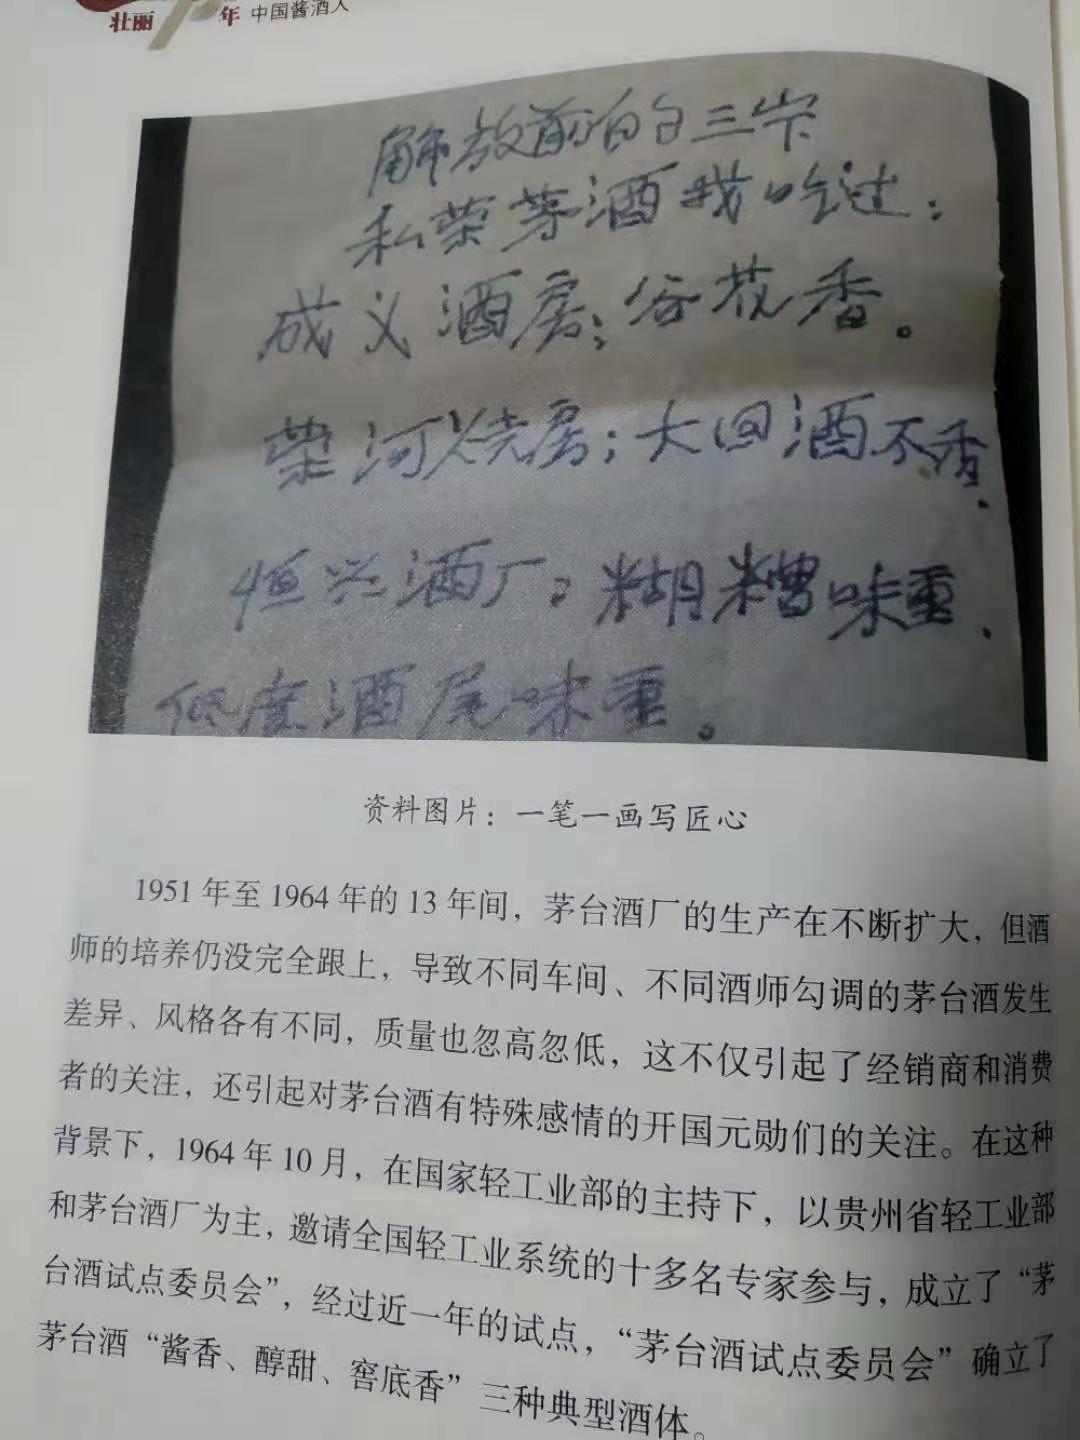 壮丽 年 中国酱酒人
解放前的三
私营茅酒我吃过：
成义酒房；谷花香。
荣河烧房；大回酒不香.
恒兴酒厂；糊糟味重.
低度酒尾味重。
资料图片：一笔一画写匠心
1951年至1964年的13年间，茅台酒厂的生产在不断扩大，但酒
师的培养仍没完全跟上，导致不同车间、不同酒师勾调的茅台酒发生
差异、风格各有不同，质量也忽高忽低，这不仅引起了经销商和消费
者的关注，还引起对茅台酒有特殊感情的开国元勋们的关注。在这种
背景下，1964年10月，在国家轻工业部的主持下，以贵州省轻工业部
和茅台酒厂为主，邀请全国轻工业系统的十多名专家参与，成立了“茅
台酒试点委员会”，经过近一年的试点，“茅台酒试点委员会”确立了
茅台酒“酱香、醇甜、窖底香”三种典型酒体。